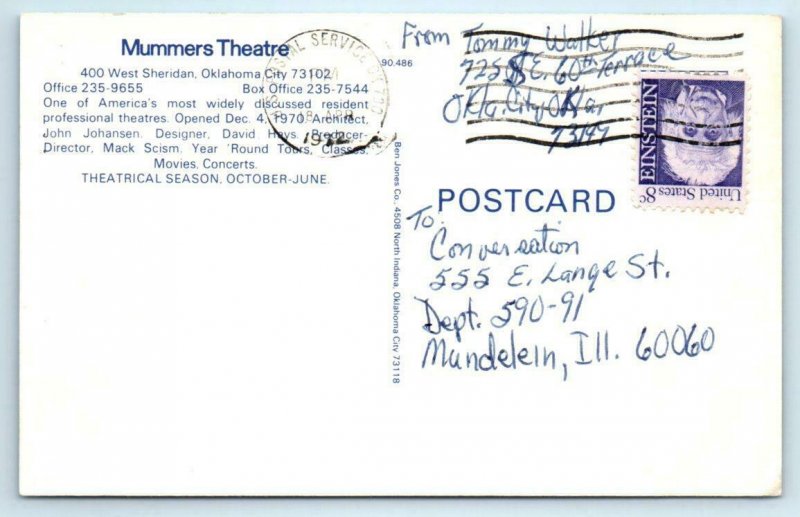 Mummers Theatre
400 West Sheridan, Oklahoma City 73102
Office 235-9655 Box Office 235-7544
One of America's most widely discussed resident
professional theatres. Opened Dec. 4, 1970. Architect,
John Johansen. Designer, David Hays. Producer-
Director, Mack Scism. Year 'Round Tours, Classes,
Movies, Concerts.
THEATRICAL SEASON. OCTOBER-JUNE.
POSTAL SERVICE
APR
1972
90.486
Ben Jones Co., 4508 North Indiana, Oklahoma City 73118
From Tommy Walker
725 S.E. 60th Terrace
Okla. City, Okla
73147
EINSTEIN
United States 8c
POSTCARD
To:
Conversation
555 E. Lange St.
Dept. 590-91
Mundelein, Ill. 60060